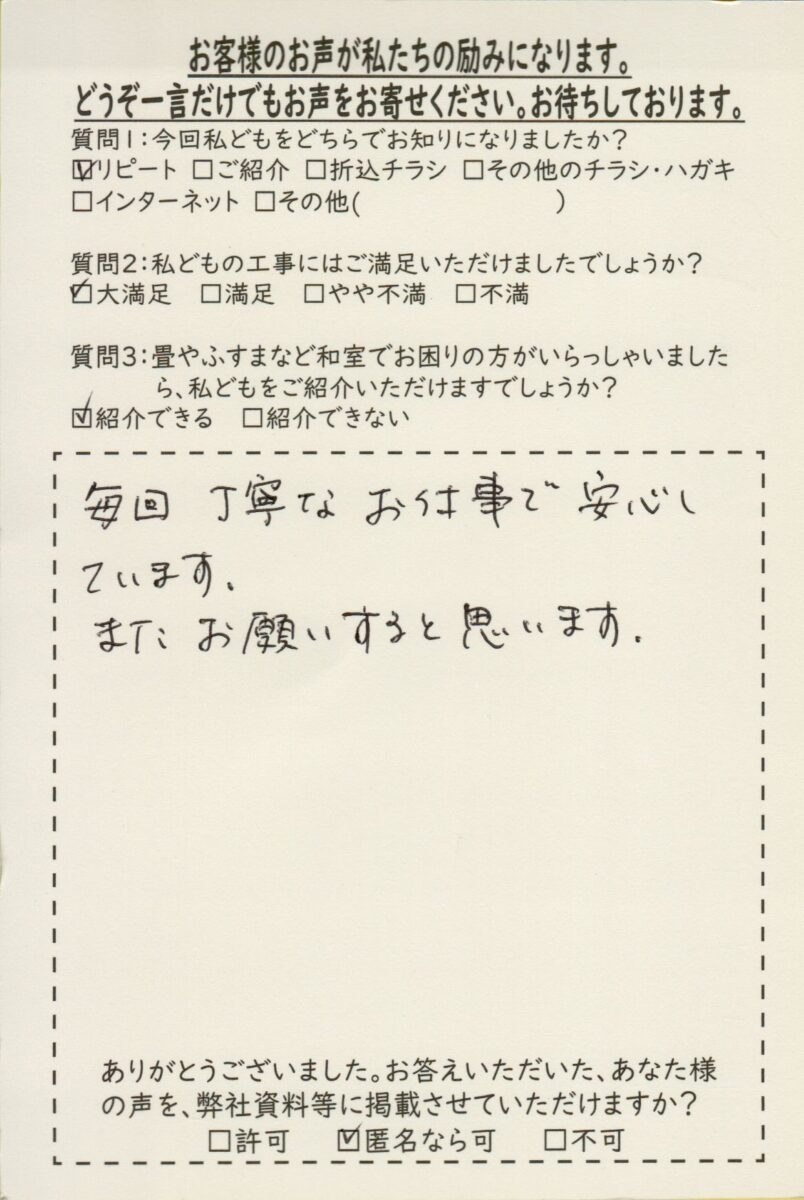 お客様のお声が私たちの励みになります。
どうぞ一言だけでもお声をお寄せください。お待ちしております。
質問1:今回私どもをどちらでお知りになりましたか?
☑リピート □ご紹介 □折込チラシ □その他のチラシ・ハガキ
□インターネット □その他( )
質問2:私どもの工事にはご満足いただけましたでしょうか?
☑大満足 □満足 □やや不満 □不満
質問3:畳やふすまなど和室でお困りの方がいらっしゃいました
ら、私どもをご紹介いただけますでしょうか?
☑紹介できる □紹介できない
毎回 丁寧な お仕事で 安心し
ています。
また お願いすると 思います.
ありがとうございました。お答えいただいた、あなた様
の声を、弊社資料等に掲載させていただけますか?
□許可 ☑匿名なら可 □不可